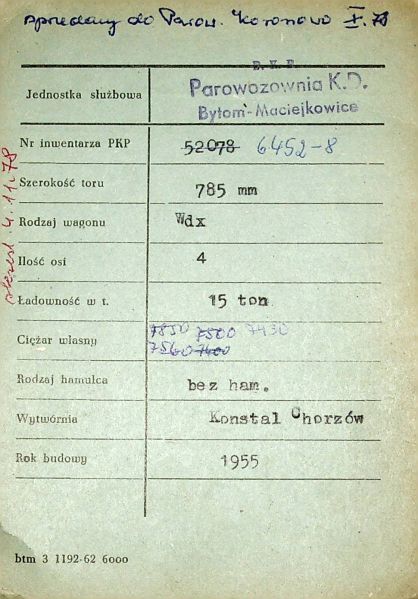 sprzedany do Parow. Koronowo X.78
P.K.P.
Jednostka służbowa Parowozownia K.D.
Bytom-Maciejkowice
Nr inwentarza PKP 52078 6452-8
Szerokość toru 785 mm
Rodzaj wagonu Wdx
Ilość osi 4
Ładowność w t. 15 ton
7850 7500 7430
Ciężar własny
7560 7400
Rodzaj hamulca bez ham.
Wytwórnia Konstal Chorzów
Rok budowy 1955
btm 3 1192-62 6000
4.11.78